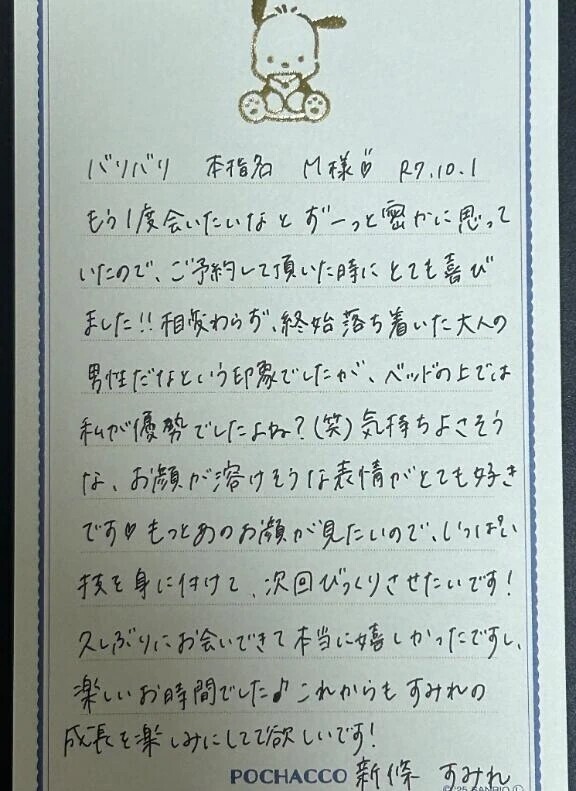 バリバリ 本指名 M様♡ R7.10.1
もう1度会いたいなと ずーっと密かに思って
いたので、ご予約して頂いた時にとても喜び
ました!!相変わらず、終始落ち着いた大人の
男性だなという印象でしたが、ベッドの上では
私が優勢でしたよね?(笑)気持ちよさそう
な、お顔が溶けそうな表情がとても好き
です♡もっとあのお顔が見たいので、いっぱい
技を身に付けて、次回びっくりさせたいです!
久しぶりにお会いできて本当に嬉しかったですし、
楽しいお時間でした♪これからもすみれの
成長を楽しみにしてて欲しいです!
新條 すみれ
POCHACCO
©'25 SANRIO